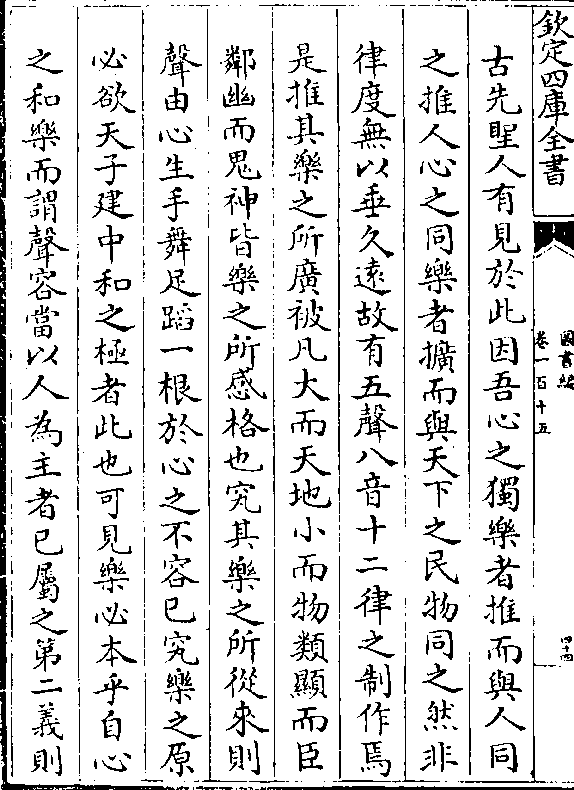 欽定四庫全書
圖書編
卷一百十五
四十四
古先聖人有見於此因吾心之獨樂者推而與人同
之推人心之同樂者擴而與天下之民物同之然非
律度無以垂久遠故有五聲八音十二律之制作焉
是推其樂之所廣被凡大而天地小而物類顯而臣
鄰幽而鬼神皆樂之所感格也究其樂之所從來則
聲由心生手舞足蹈一根於心之不容已究樂之原
必欲天子建中和之極者此也可見樂必本乎自心
之和樂而謂聲容當以人為主者已屬之第二義則